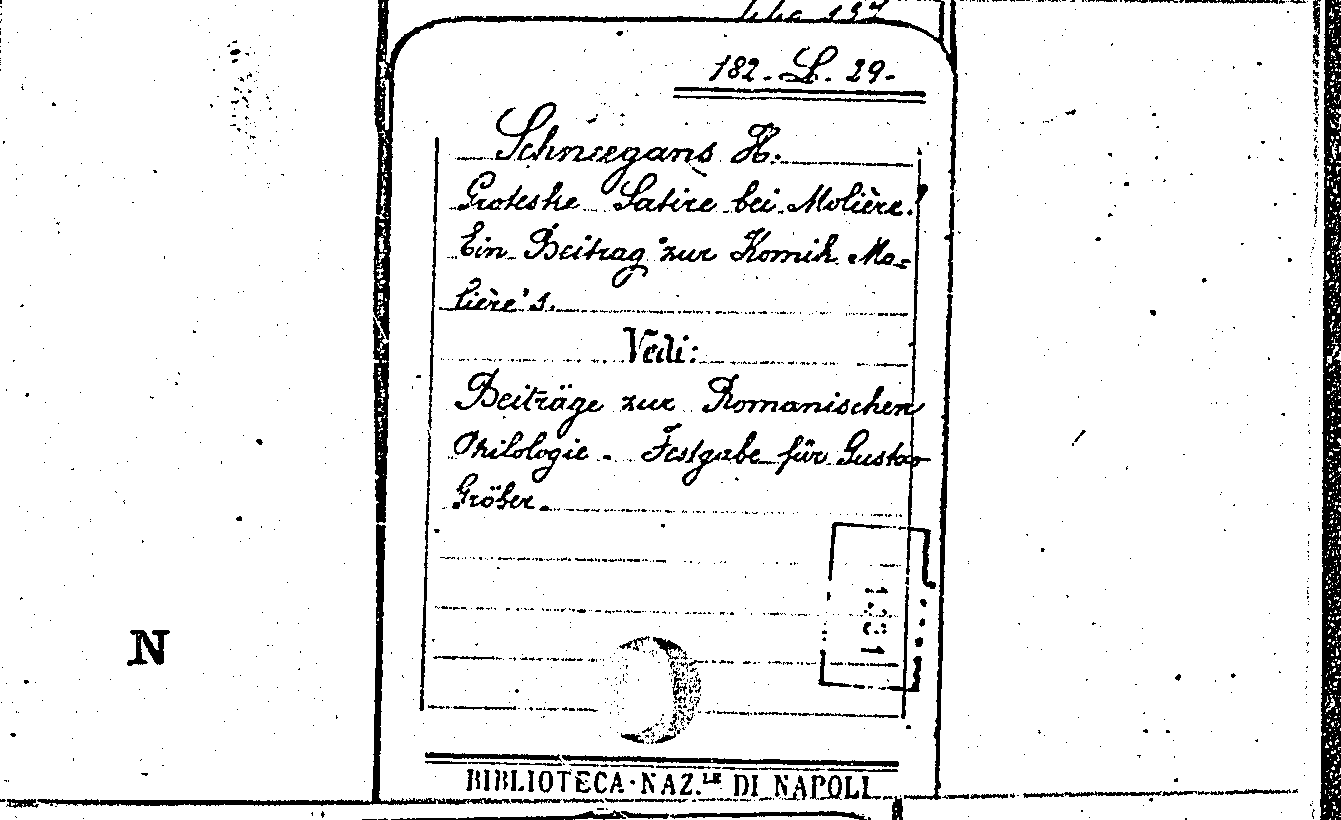 182. L. 29.
Schneegans H.
Groteske Satire bei Molière?
Ein Beitrag zur Komik Mo=
lière's.
Vedi:
Beiträge zur Romanischen
Philologie. Festgabe für Gustav
Gröber.
N
BIBLIOTECA·NAZ.LE DI NAPOLI